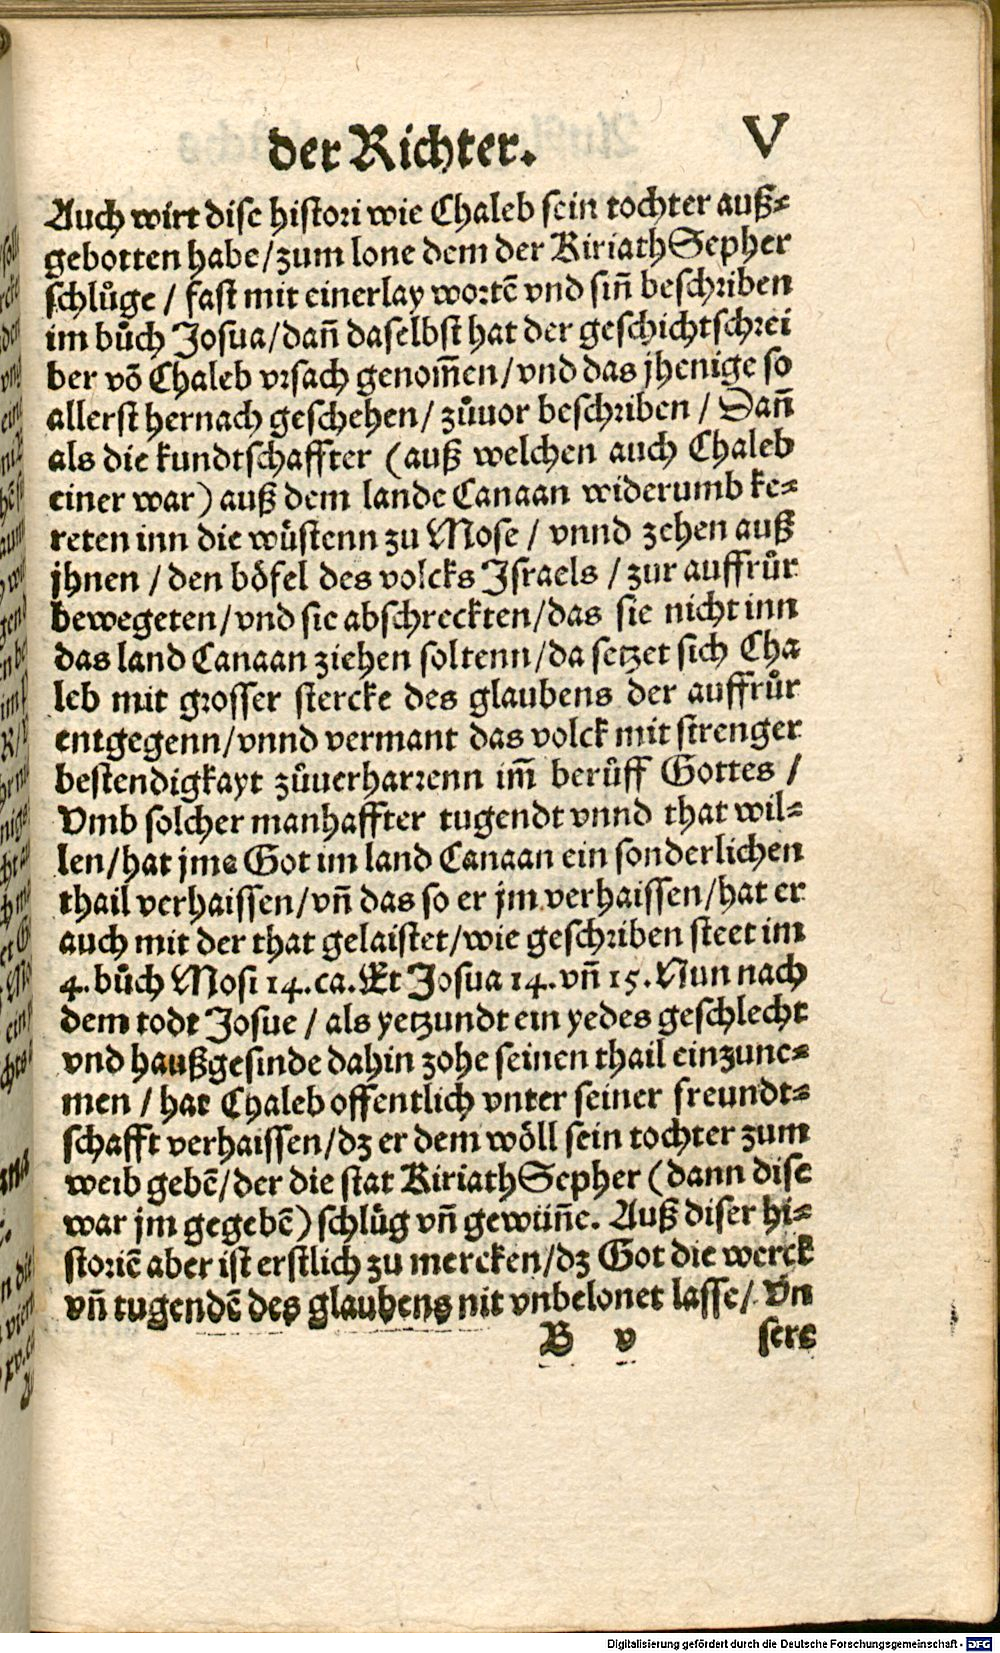 der Richter. V
Auch wirt dise histori wie Chaleb sein tochter auß⸗
gebotten habe/zum lone dem der KiriathSepher
schlůge / fast mit einerlay wortē vnd sin̄ beschriben
im bůch Josua/dan̄ daselbst hat der geschichtschrei
ber vō Chaleb vrsach genom̄en/vnd das jhenige so
allerst hernach geschehen/ zůuor beschriben / Dan̄
als die kundtschaffter (auß welchen auch Chaleb
einer war) auß dem lande Canaan widerumb ke⸗
reten inn die wüstenn zu Mose / vnnd zehen auß
jhnen / den böfel des volcks Israels / zur auffrůr
bewegeten/vnd sie abschreckten/das sie nicht inn
das land Canaan ziehen soltenn/da setzet sich Cha
leb mit grosser stercke des glaubens der auffrůr
entgegenn/vnnd vermant das volck mit strenger
bestendigkayt zůuerharrenn im̄ berůff Gottes /
Vmb solcher manhaffter tugendt vnnd that wil⸗
len/hat jme Got im land Canaan ein sonderlichen
thail verhaissen/vn̄ das so er jm verhaissen/hat er
auch mit der that gelaistet/wie geschriben steet im
4. bůch Mosi 14.ca. Et Josua 14. vn̄ 15. Nun nach
dem todt Josue / als yetzundt ein yedes geschlecht
vnd haußgesinde dahin zohe seinen thail einzune⸗
men / hat Chaleb offentlich vnter seiner freundt⸗
schafft verhaissen/dz er dem wöll sein tochter zum
weib gebē/der die stat KiriathSepher (dann dise
war jm gegebē) schlůg vn̄ gewün̄e. Auß diser hi⸗
storiē aber ist erstlich zu mercken/dz Got die werck
vn̄ tugendē des glaubens nit vnbelonet lasse/ Vn
B v sere
Digitalisierung gefördert durch die Deutsche Forschungsgemeinschaft - DFG